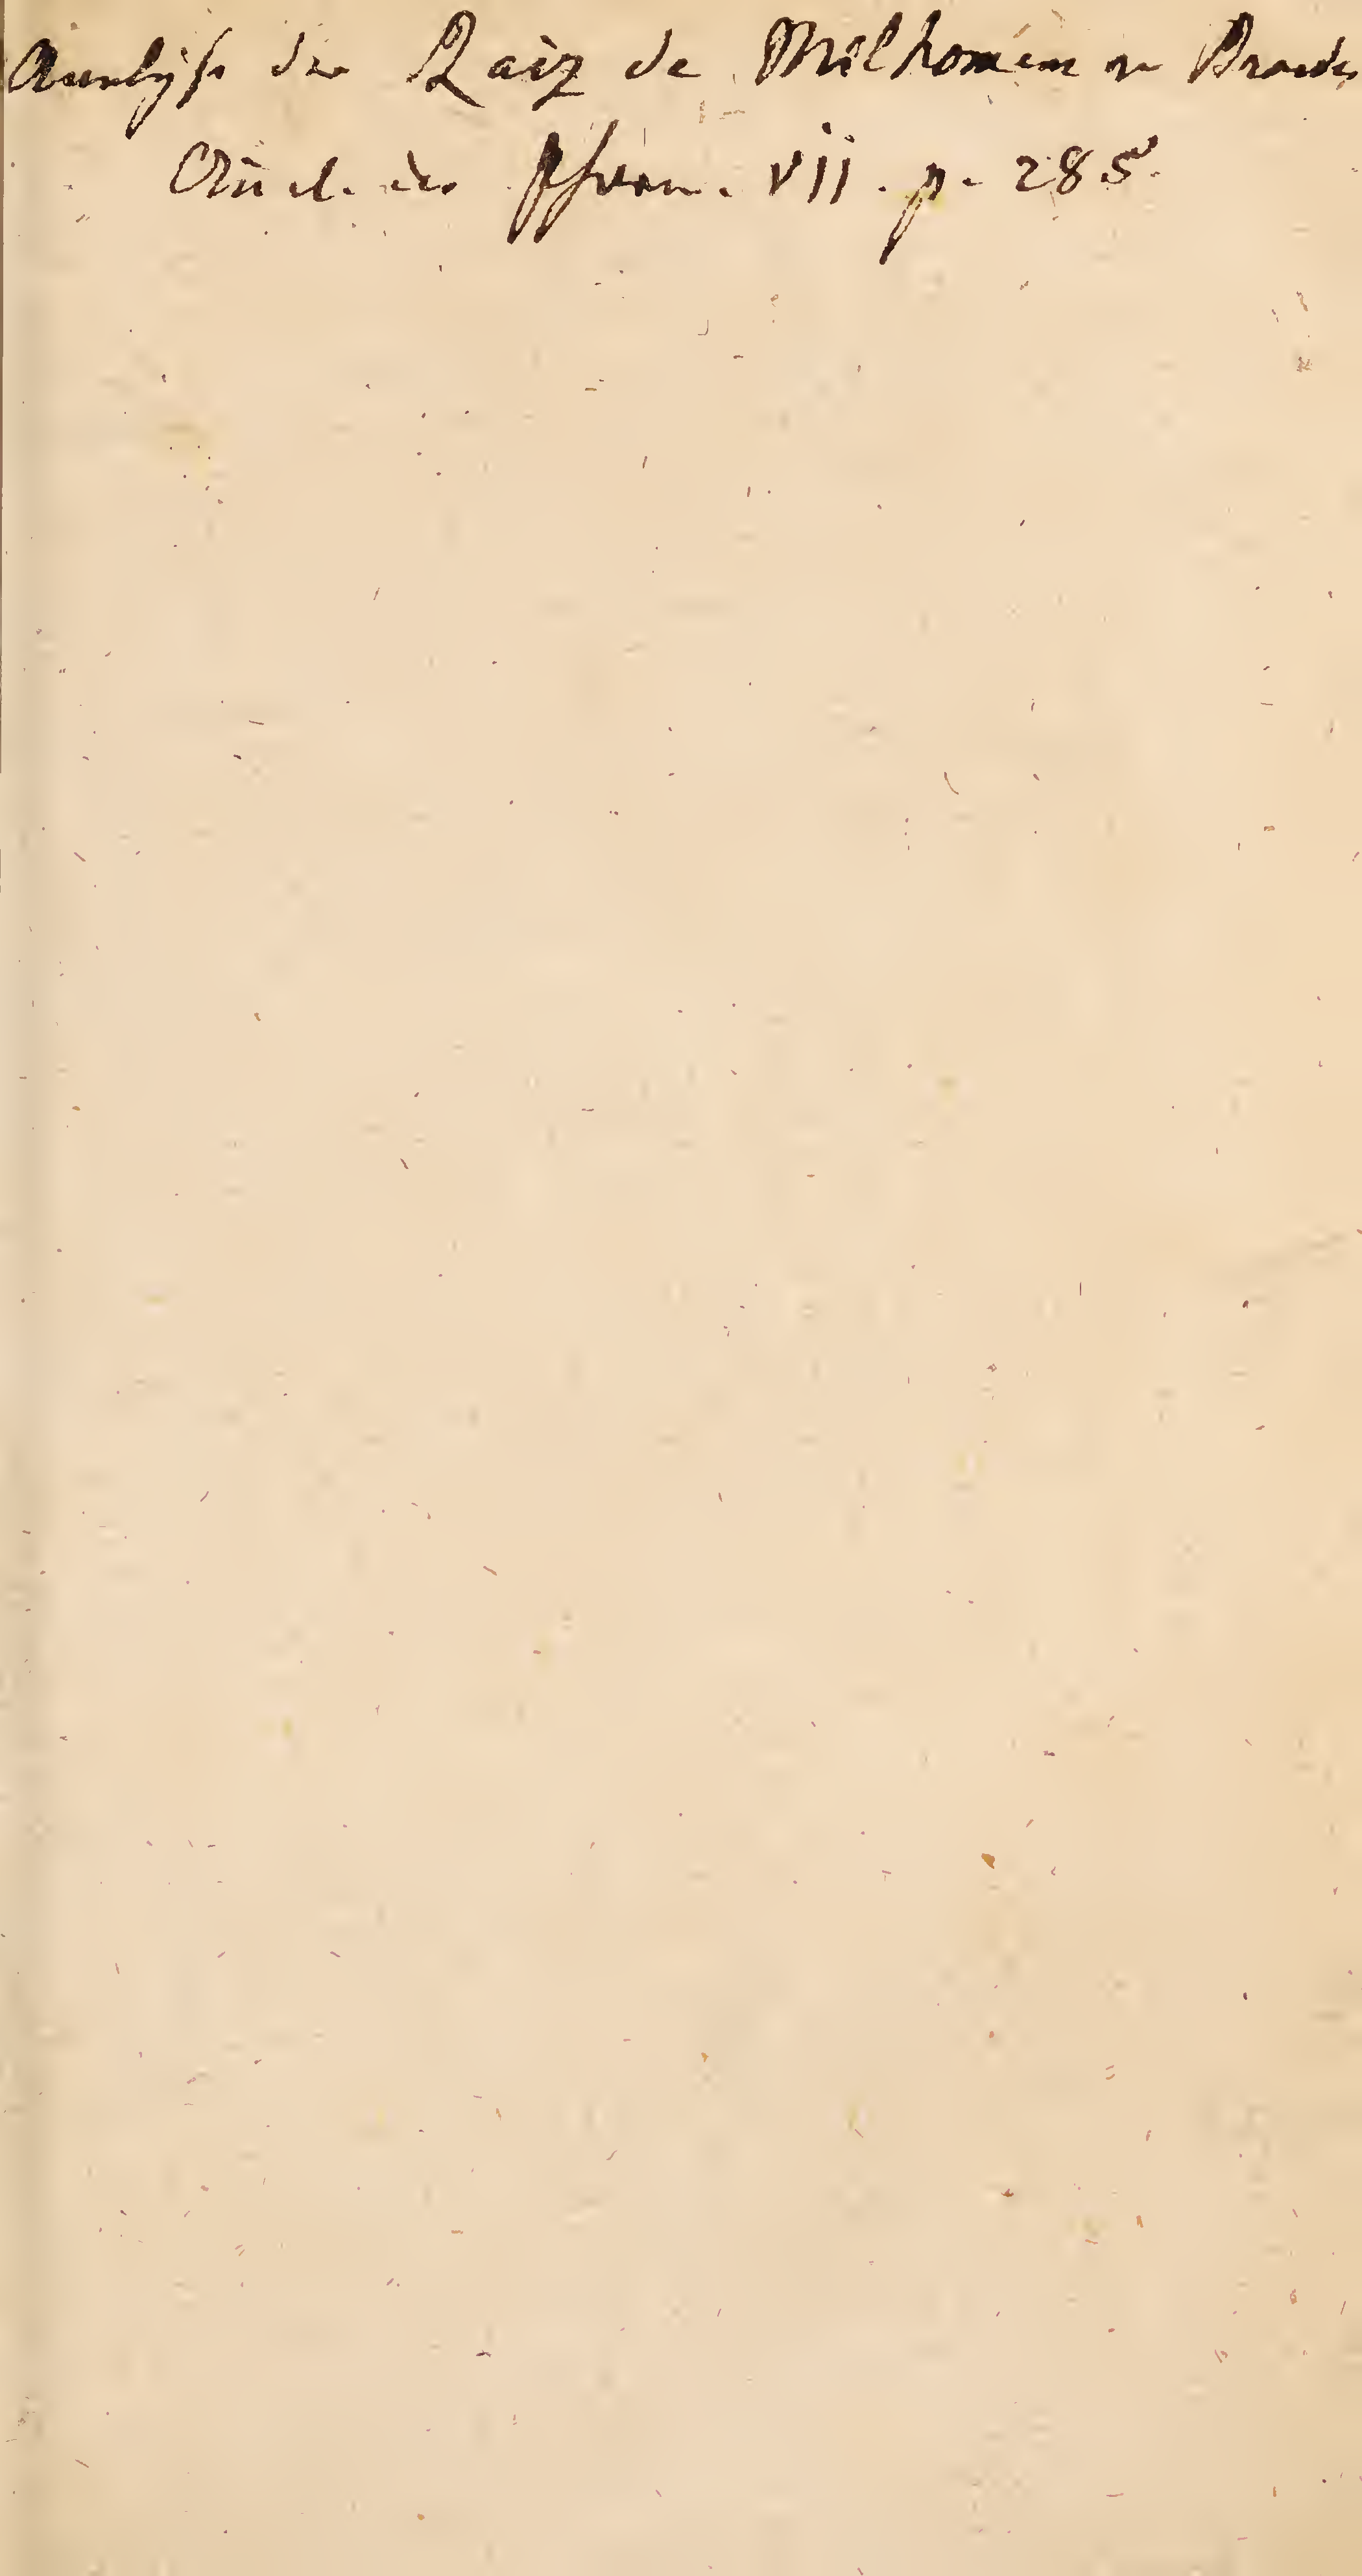 Analyse der Raiz de Milhomem v. Brandes
Annal. der Pharm. VII. p. 285.